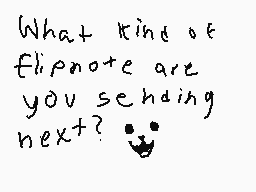 What kind of
flipnote are
you sending
next?